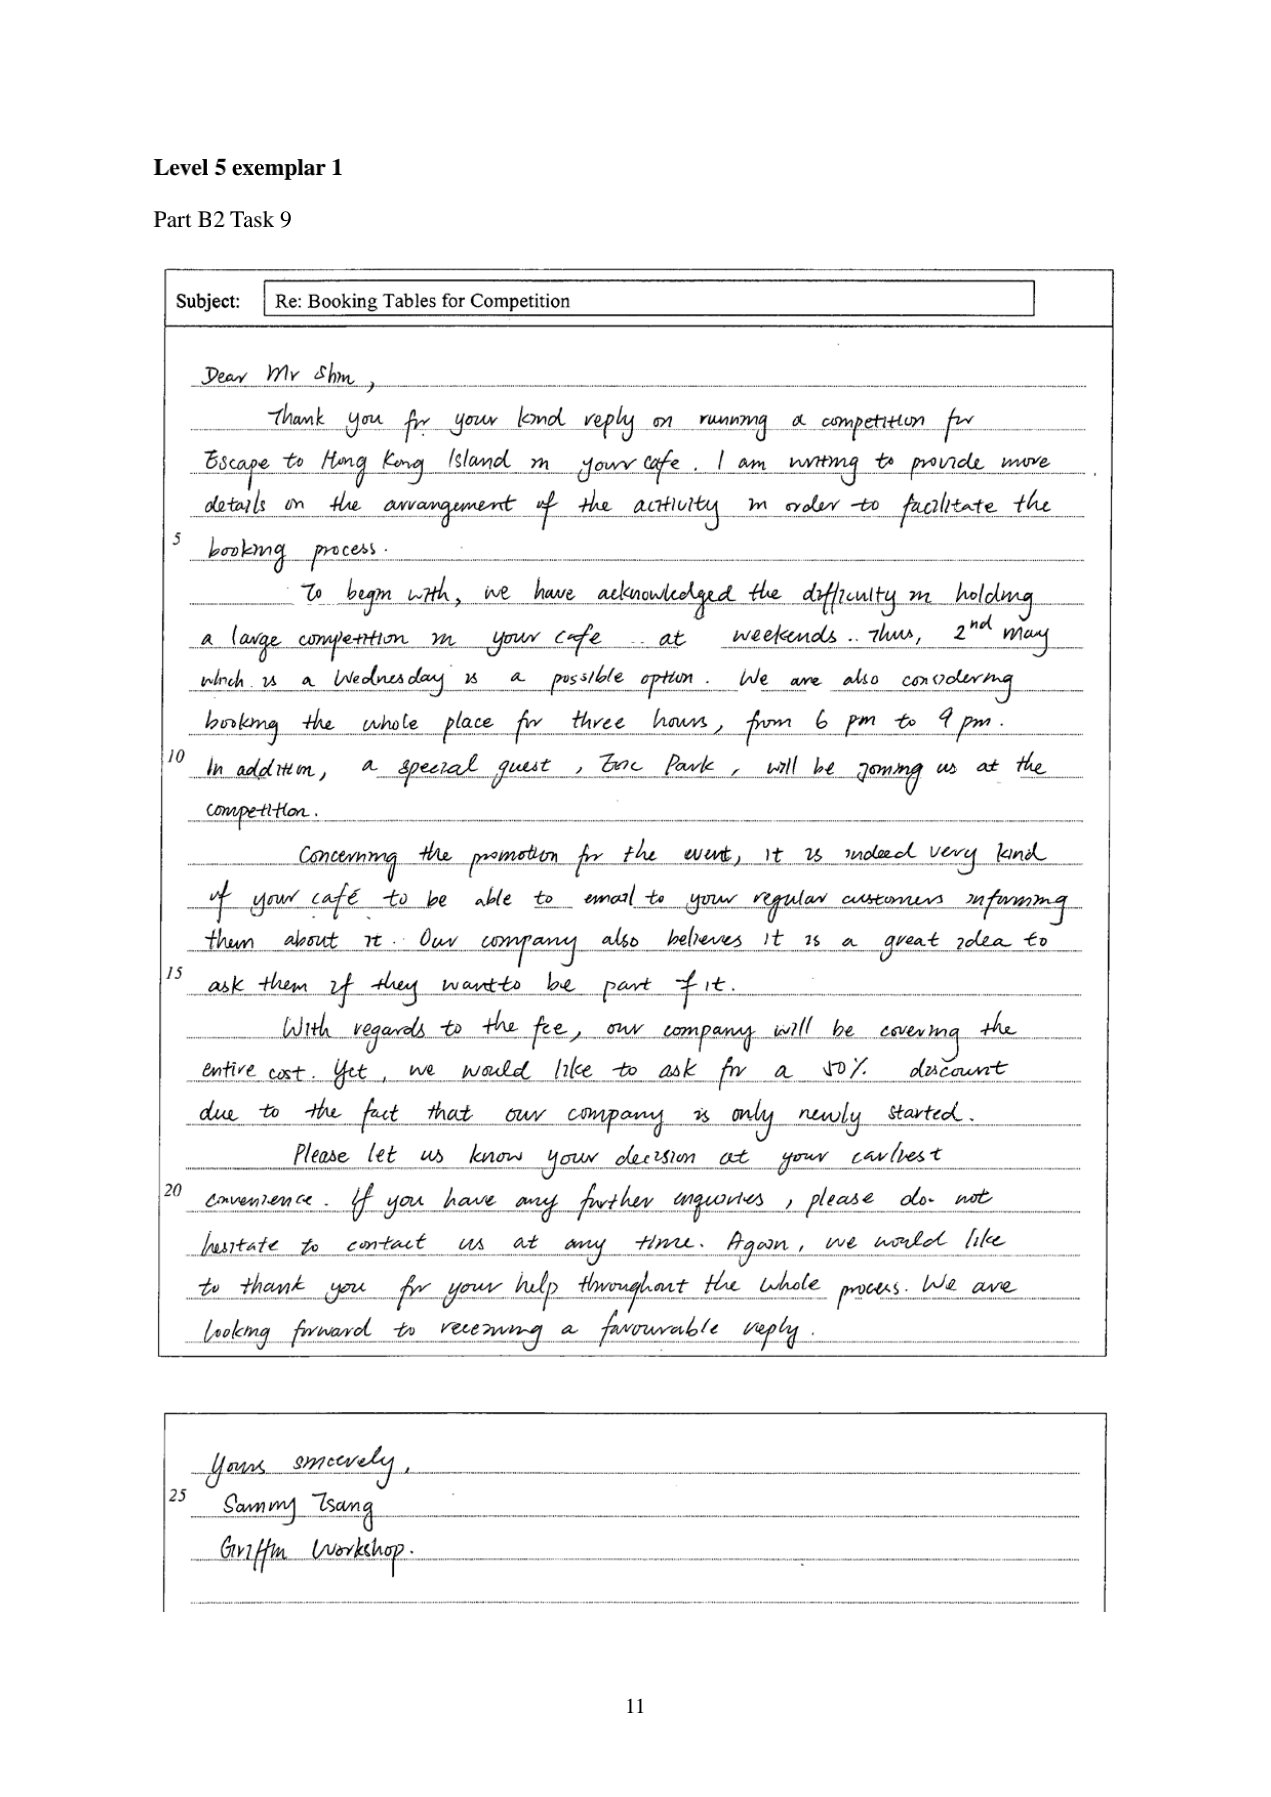 Level 5 exemplar 1
Part B2 Task 9
Subject: Re: Booking Tables for Competition
Dear Mr Shin,
Thank you for your kind reply on running a competition for
Escape to Hong Kong Island in your cafe. I am writing to provide more
details on the arrangement of the activity in order to facilitate the
5 booking process.
To begin with, we have acknowledged the difficulty in holding
a large competition in your cafe at weekends. Thus, 2nd May
which is a Wednesday is a possible option. We are also considering
booking the whole place for three hours, from 6 pm to 9 pm.
10 In addition, a special guest, Eric Park, will be joining us at the
competition.
Concerning the promotion for the event, it is indeed very kind
of your café to be able to email to your regular customers informing
them about it. Our company also believes it is a great idea to
15 ask them if they want to be part of it.
With regards to the fee, our company will be covering the
entire cost. Yet, we would like to ask for a 50% discount
due to the fact that our company is only newly started.
Please let us know your decision at your earliest
20 convenience. If you have any further enquiries, please do not
hesitate to contact us at any time. Again, we would like
to thank you for your help throughout the whole process. We are
looking forward to receiving a favourable reply.
Yours sincerely,
25 Sammy Tsang
Griffin Workshop.
11